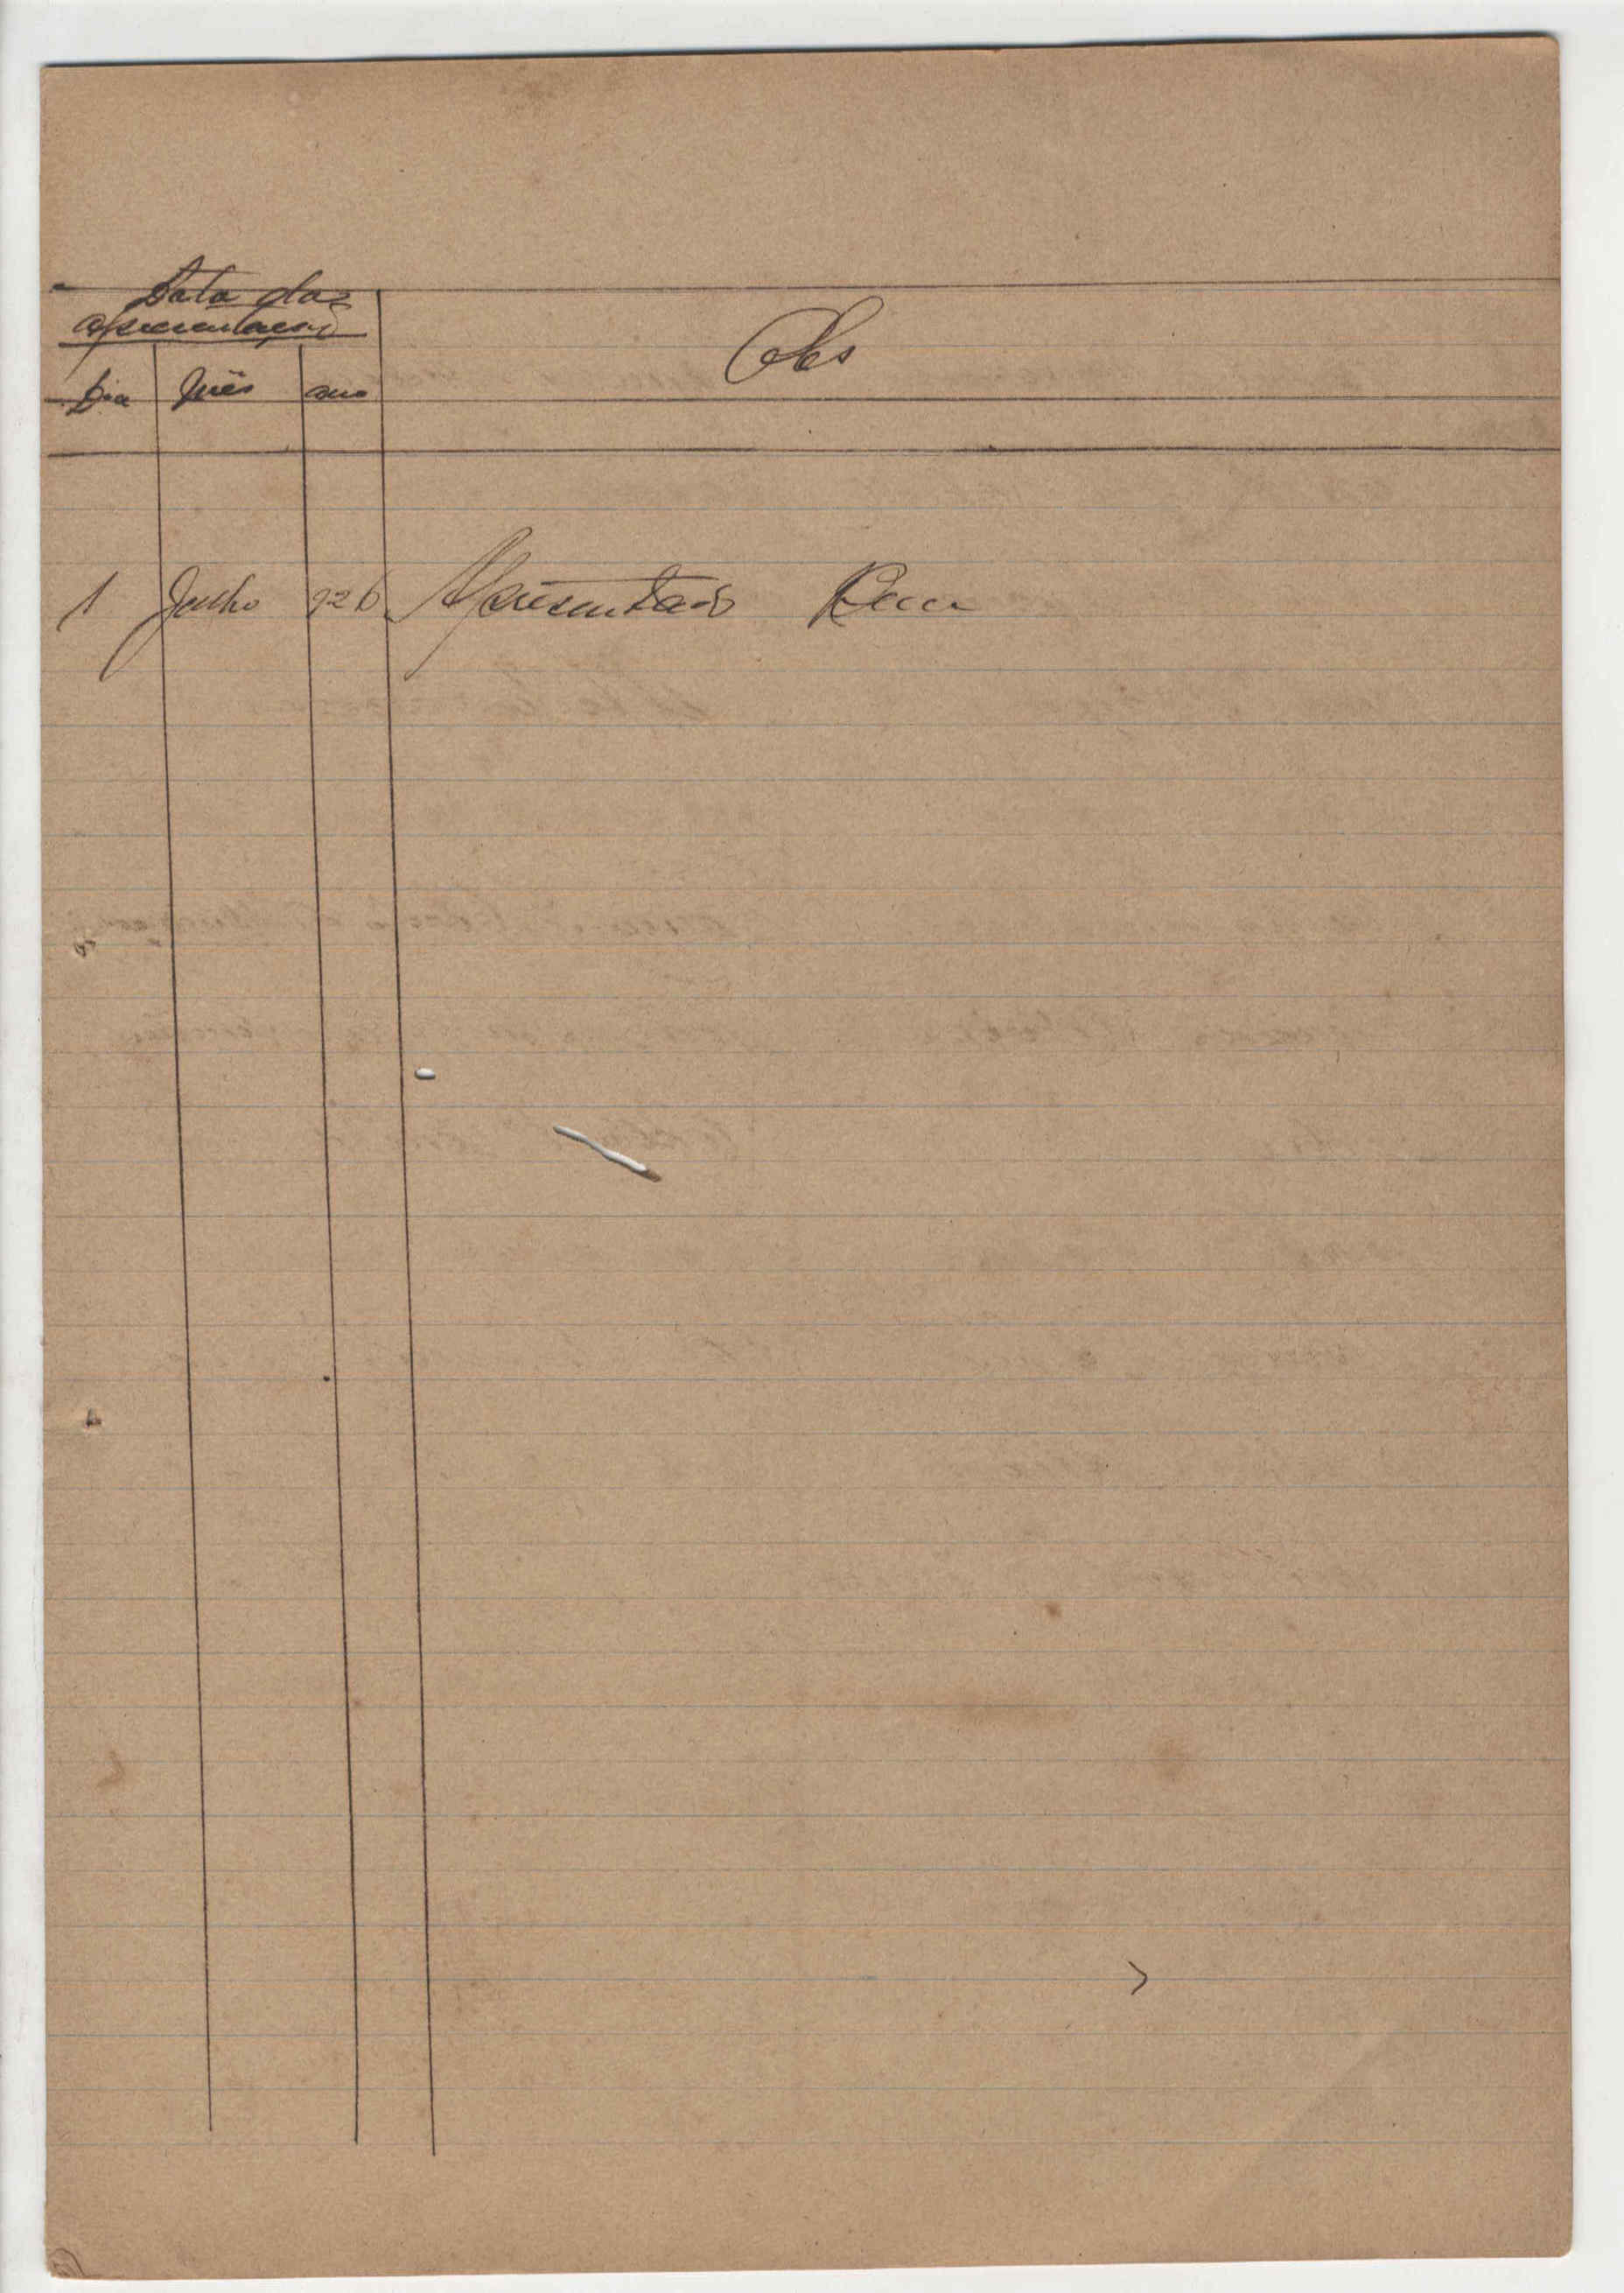 Data das
apresentações
Dia Mês ano
Obs
1 Junho 926 Apresentado